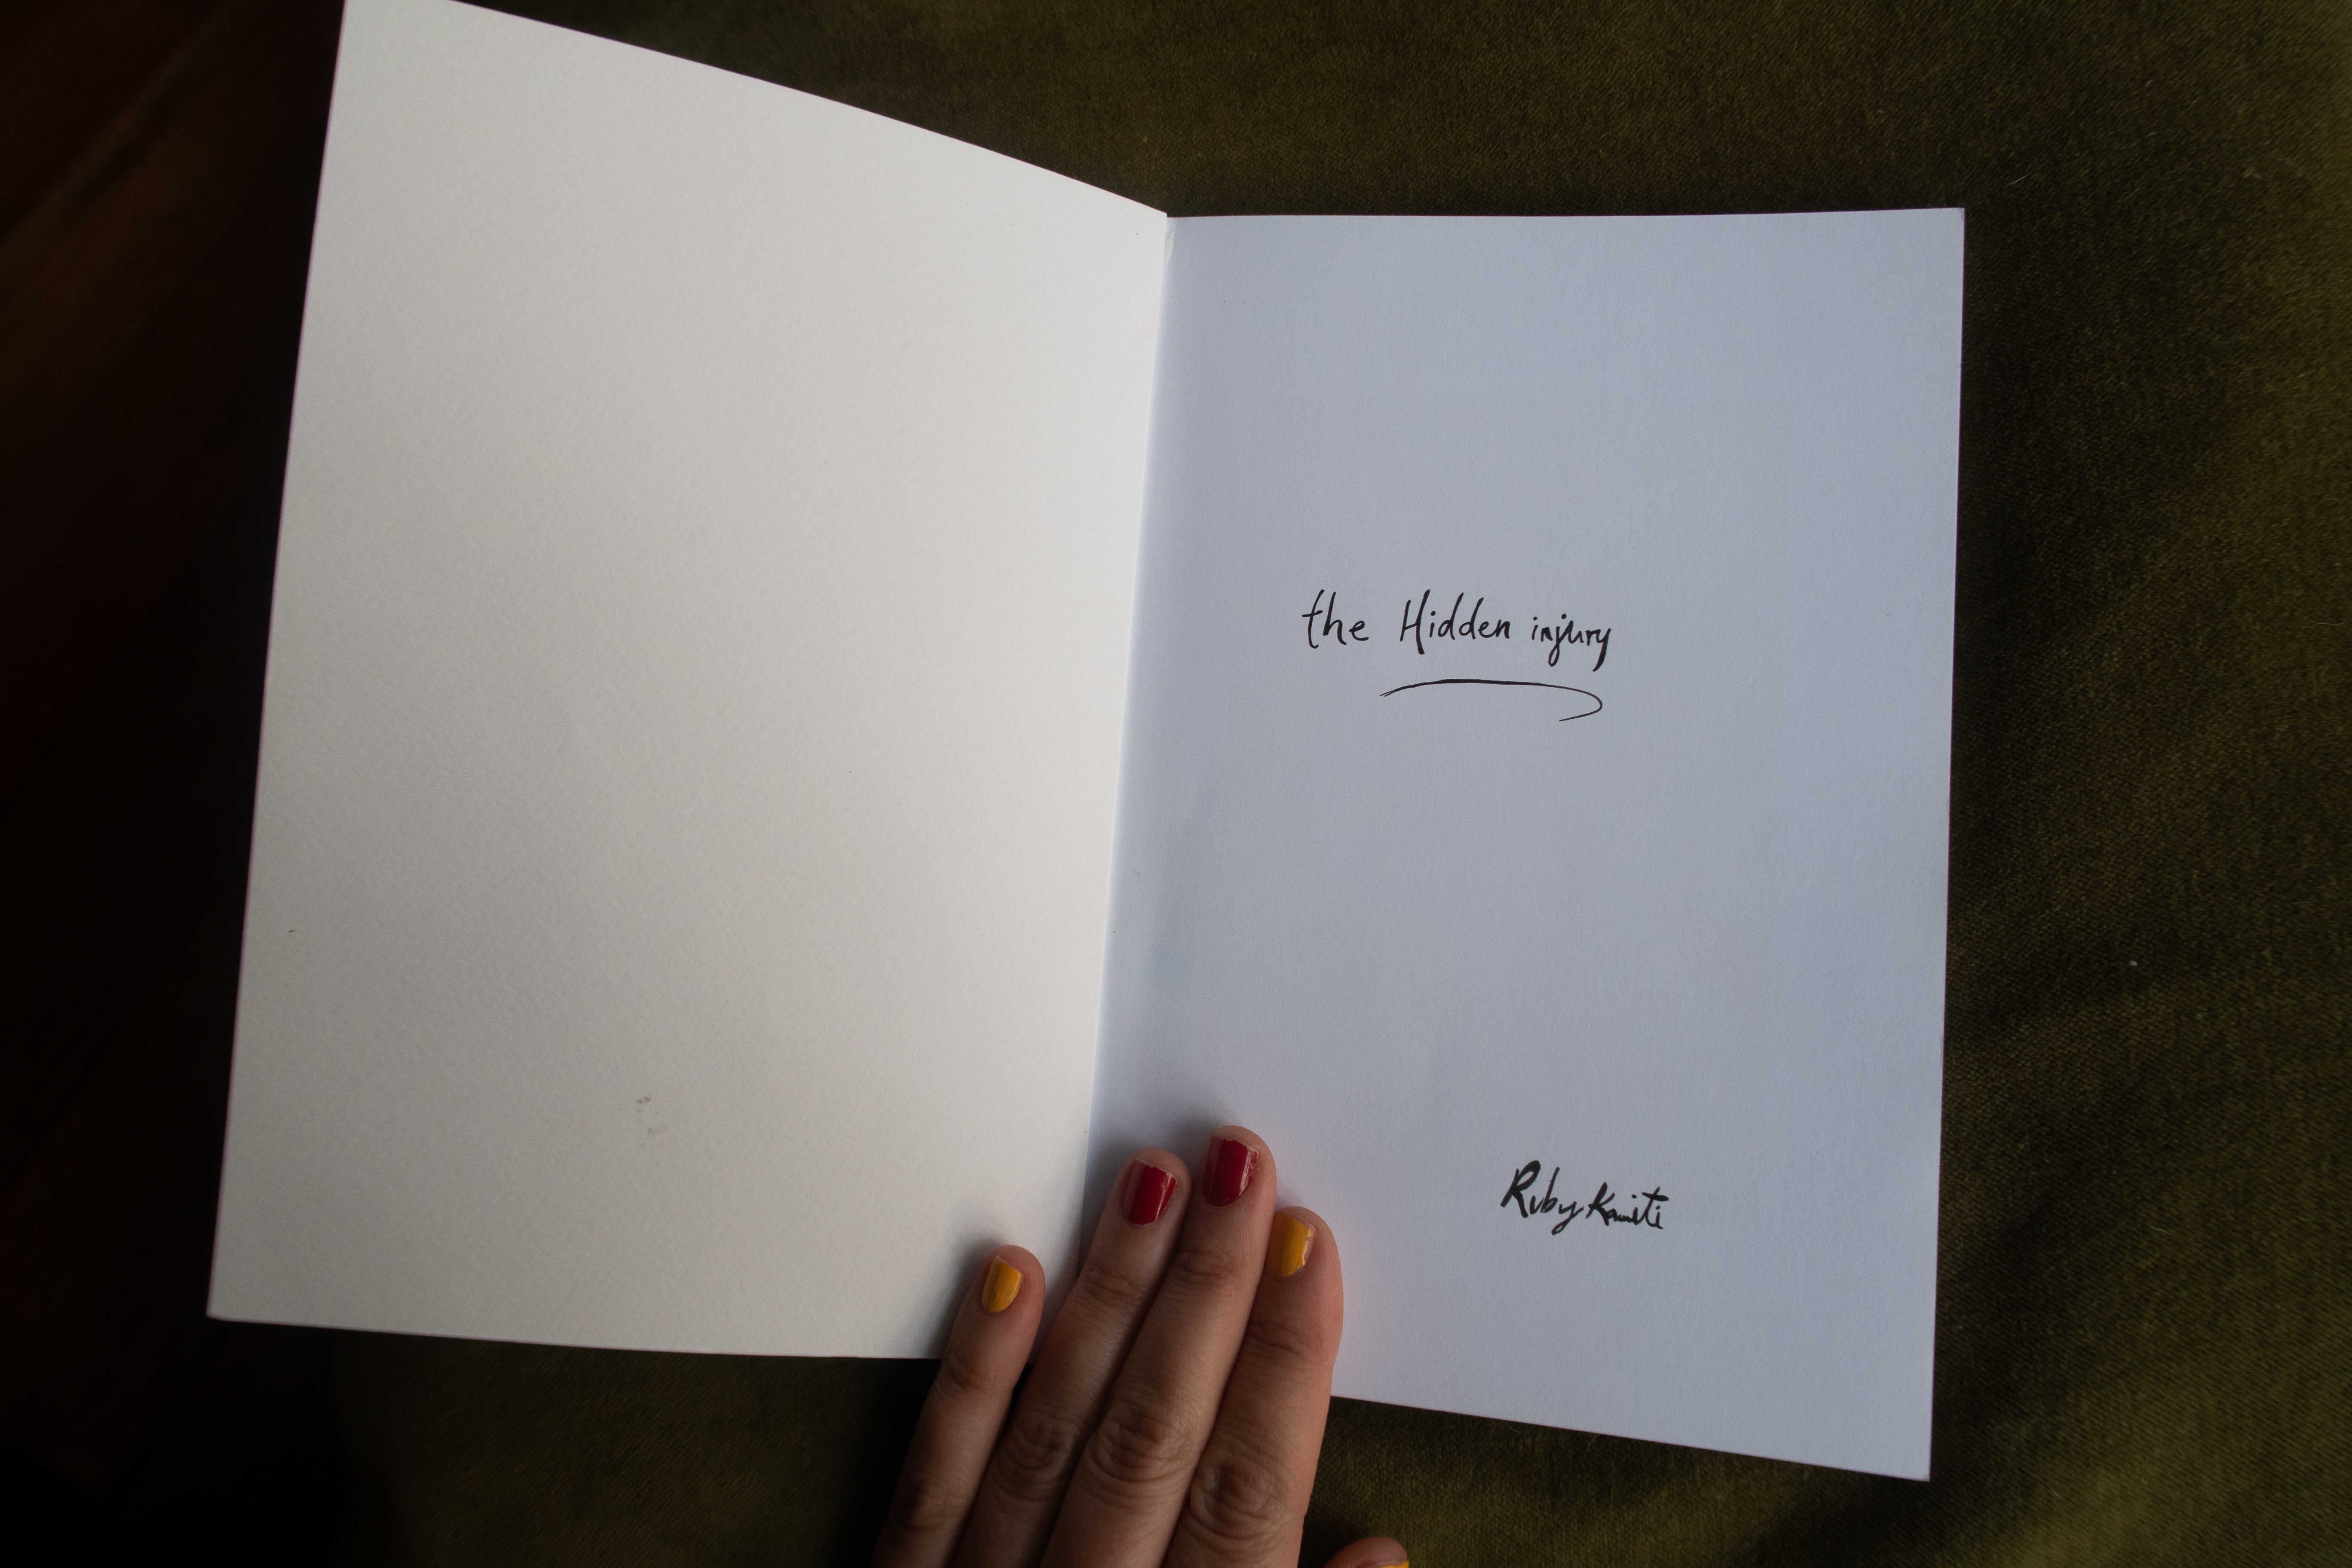 the Hidden injury
Ruby